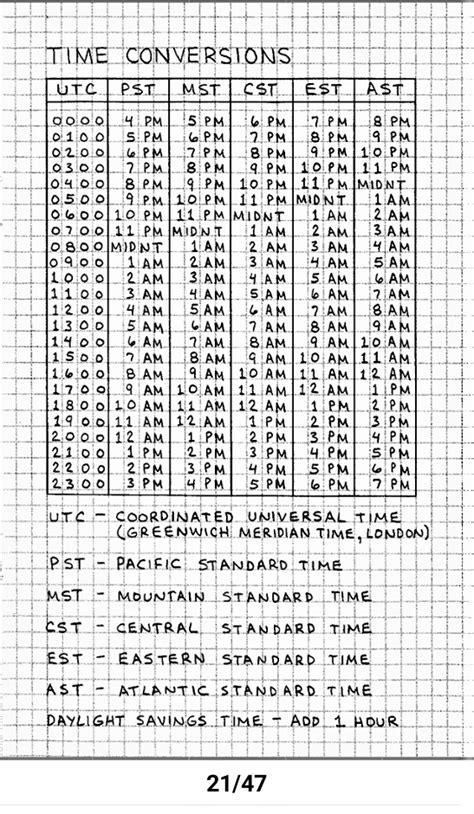 TIME CONVERSIONS
UTC PST MST CST EST AST
0000 4 PM 5 PM 6 PM 7 PM 8 PM
0100 5 PM 6 PM 7 PM 8 PM 9 PM
0200 6 PM 7 PM 8 PM 9 PM 10 PM
0300 7 PM 8 PM 9 PM 10 PM 11 PM
0400 8 PM 9 PM 10 PM 11 PM MIDNT
0500 9 PM 10 PM 11 PM MIDNT 1 AM
0600 10 PM 11 PM MIDNT 1 AM 2 AM
0700 11 PM MIDNT 1 AM 2 AM 3 AM
0800 MIDNT 1 AM 2 AM 3 AM 4 AM
0900 1 AM 2 AM 3 AM 4 AM 5 AM
1000 2 AM 3 AM 4 AM 5 AM 6 AM
1100 3 AM 4 AM 5 AM 6 AM 7 AM
1200 4 AM 5 AM 6 AM 7 AM 8 AM
1300 5 AM 6 AM 7 AM 8 AM 9 AM
1400 6 AM 7 AM 8 AM 9 AM 10 AM
1500 7 AM 8 AM 9 AM 10 AM 11 AM
1600 8 AM 9 AM 10 AM 11 AM 12 AM
1700 9 AM 10 AM 11 AM 12 AM 1 PM
1800 10 AM 11 AM 12 AM 1 PM 2 PM
1900 11 AM 12 AM 1 PM 2 PM 3 PM
2000 12 AM 1 PM 2 PM 3 PM 4 PM
2100 1 PM 2 PM 3 PM 4 PM 5 PM
2200 2 PM 3 PM 4 PM 5 PM 6 PM
2300 3 PM 4 PM 5 PM 6 PM 7 PM
UTC - COORDINATED UNIVERSAL TIME
(GREENWICH MERIDIAN TIME, LONDON)
PST - PACIFIC STANDARD TIME
MST - MOUNTAIN STANDARD TIME
CST - CENTRAL STANDARD TIME
EST - EASTERN STANDARD TIME
AST - ATLANTIC STANDARD TIME
DAYLIGHT SAVINGS TIME - ADD 1 HOUR
21/47